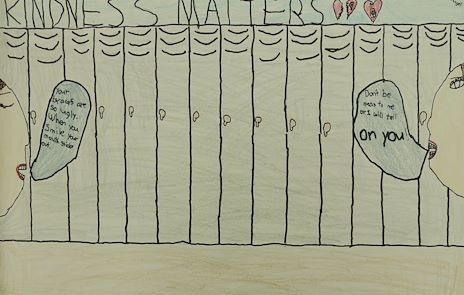 KINDNESS MATTERS
Your
bracets are
so ugly.
When you
Smile your
mouth
out.
Don't be
mean to me
or I will tell
on you.